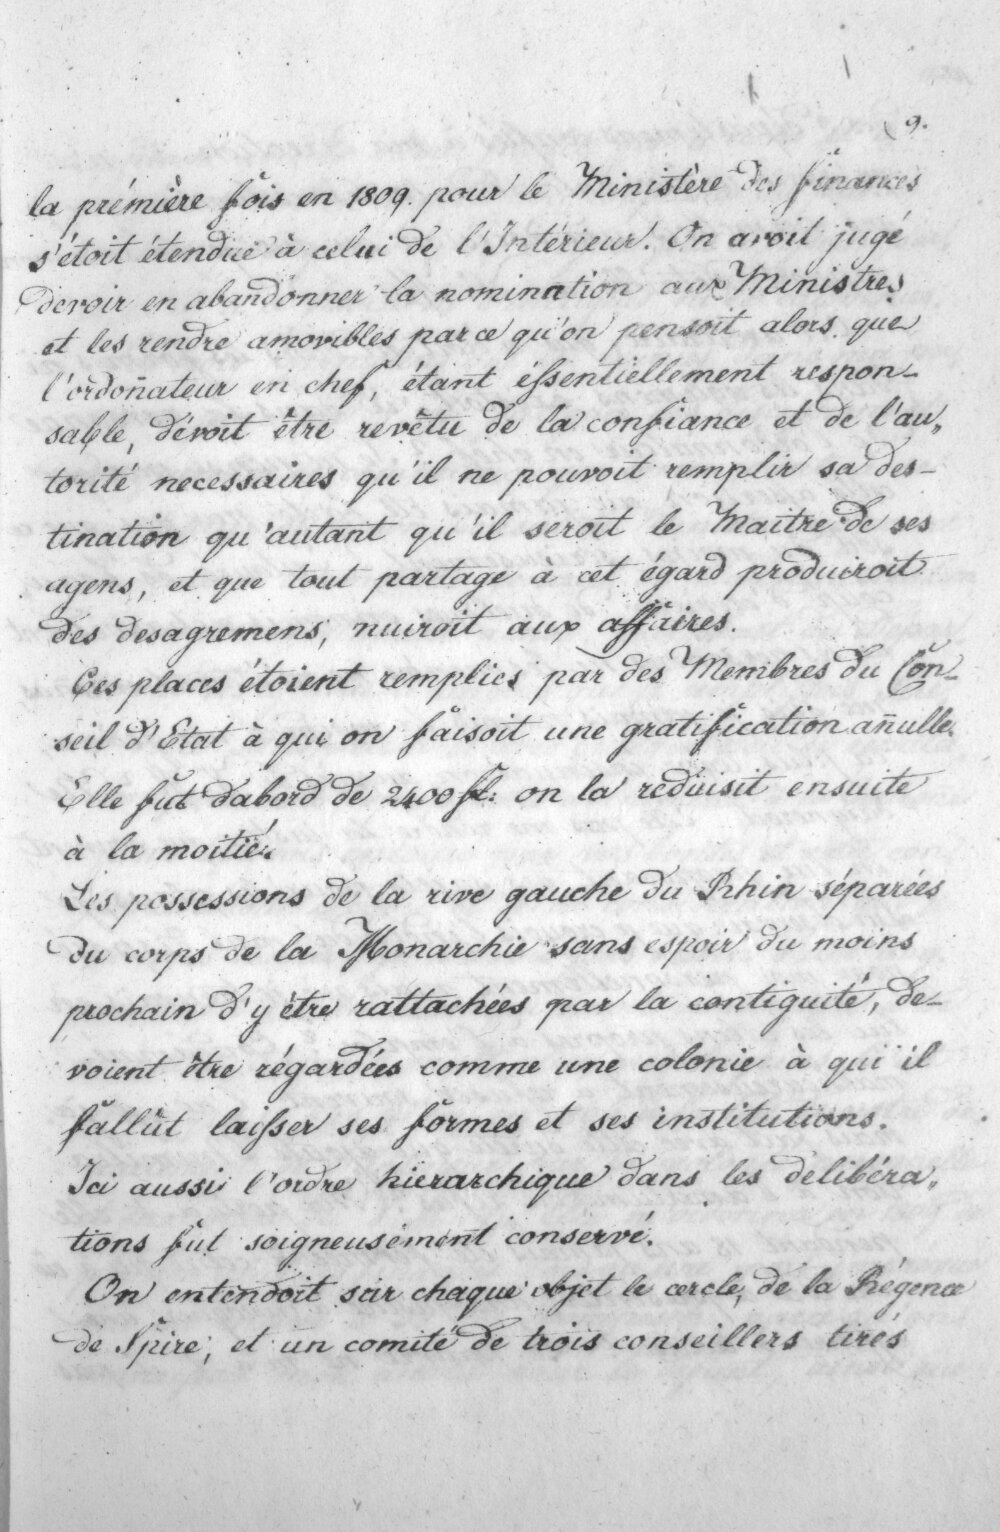 9.
la prémière fois en 1809. pour le Ministère des finances
s'étoit étendue à celui de l'Intérieur. On avoit jugé
devoir en abandonner la nomination aux Ministres
et les rendre amovibles parce qu'on pensoit alors que
l'ordoñateur en chef, étant éssentiellement respon-
sable, dévoit être revêtu de la confiance et de l'au„
torité necessaires qu'il ne pouvoit remplir sa des-
tination qu'autant qu'il seroit le Maitre de ses
agens, et que tout partage à cet égard produiroit
des desagremens, nuiroit aux affaires.
Ces places étoient remplies par des Membres du Con-
seil d'Etat à qui on faisoit une gratification añulle.
Elle fut dabord de 2400 fl: on la reduisit ensuite
à la moitié.
Les possessions de la rive gauche du Rhin séparées
du corps de la Monarchie sans espoir du moins
prochain d'y être rattachées par la contiguité, de-
voient être régardées comme une colonie à qui il
fallût laisser ses formes et ses institutions.
Ici aussi l'ordre hierarchique dans les delibéra„
tions fut soigneusement conservé.
On entendoit sur chaque objet le cercle, de la Régence
de Spire, et un comité de trois conseillers tirés